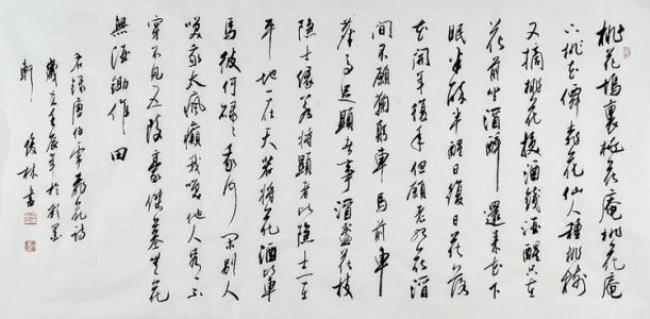 桃花塢裏桃花庵桃花庵
下桃花僊桃花仙人種桃樹
又摘桃花換酒錢酒醒只在
花前坐酒醉還來花下
眠半醉半醒日復日花落
花開年復年但願老死花酒
間不願鞠躬車馬前車
塵馬足顯者事酒盞花枝
隱士緣若將顯者比隱士一在
平地一在天若將花酒比車
馬彼何碌碌我何閑別人
笑我太瘋癲我笑他人看不
穿不見五陵豪傑墓無花
無酒鋤作田
右錄唐伯虎桃花詩
歲在壬辰年於墨
軒 林書